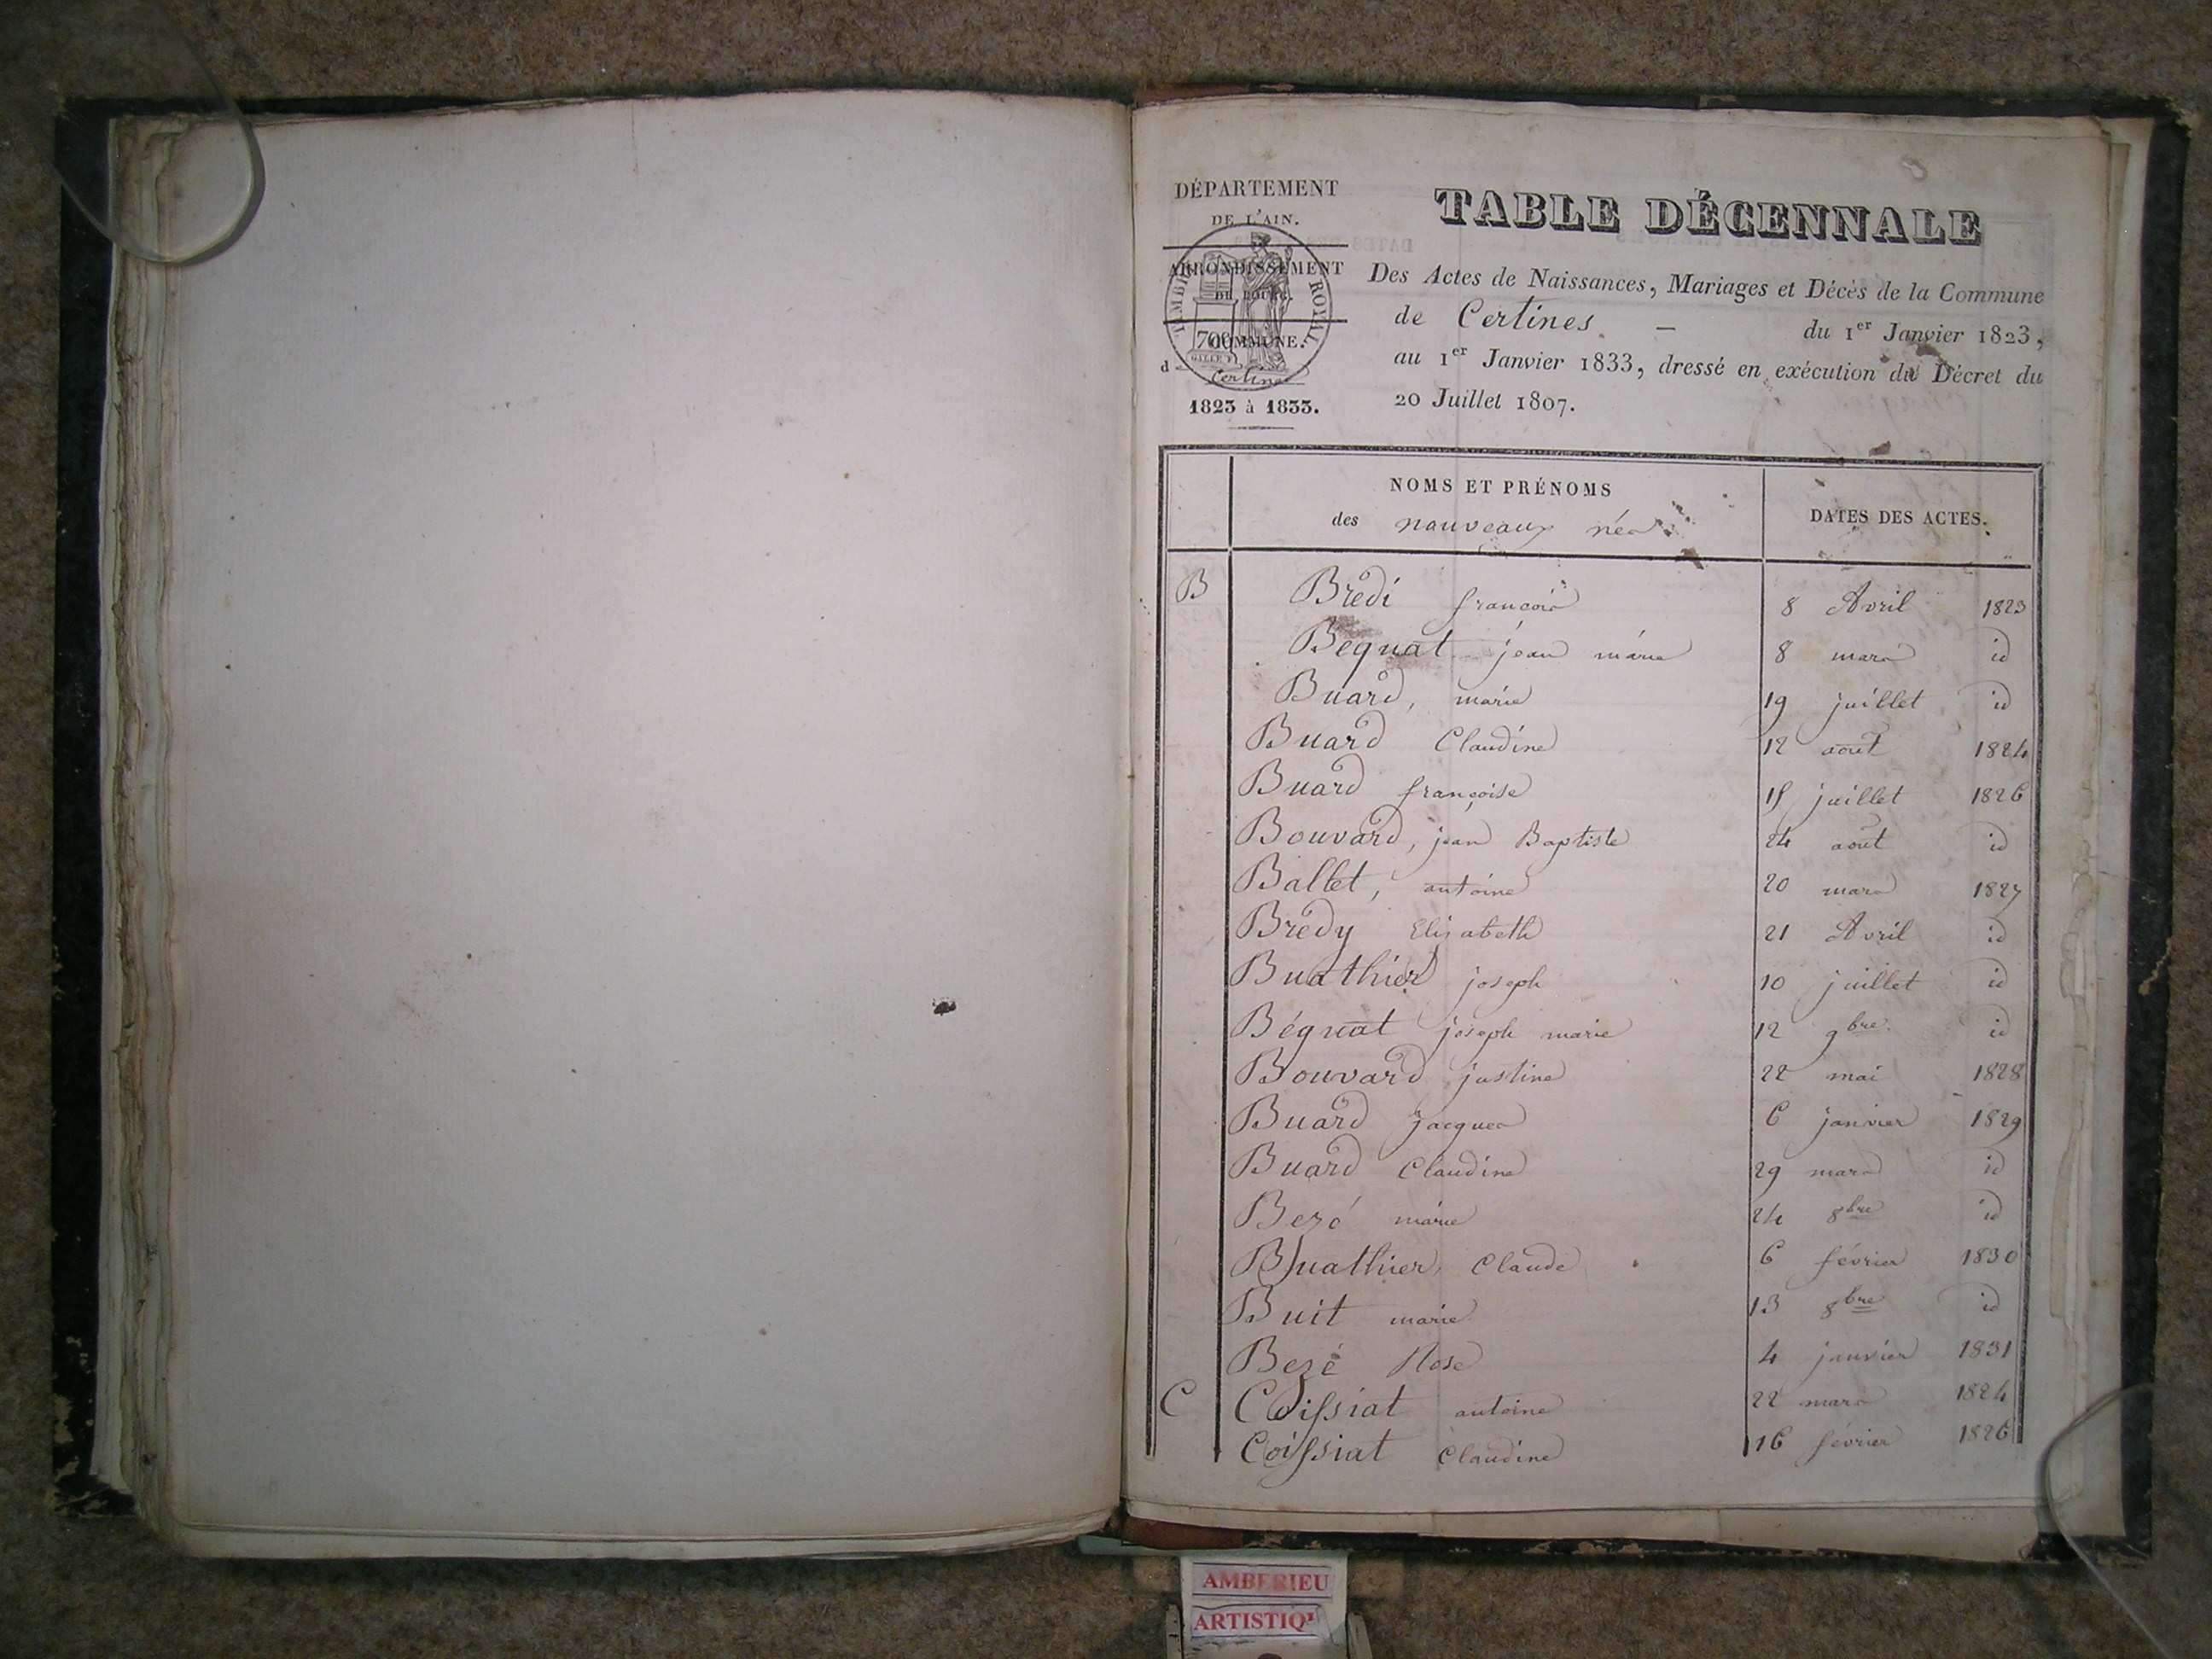 DÉPARTEMENT
DE L'AIN.
ARRONDISSEMENT
DE BOURG.
COMMUNE.
d Certines
1823 à 1833.
TIMBRE ROYAL
70
TABLE DÉCENNALE
Des Actes de Naissances, Mariages et Décès de la Commune
de Certines — du 1er Janvier 1823,
au 1er Janvier 1833, dressé en exécution du Décret du
20 Juillet 1807.
NOMS ET PRÉNOMS
des nouveaux nés
DATES DES ACTES.
B Brédi françois 8 Avril 1823
Béguat jean marie 8 mars id
Buard, marie 19 juillet id
Buard Claudine 12 août 1824
Buard françoise 15 juillet 1826
Bouvard, jean Baptiste 24 août id
Ballet, antoine 20 mars 1827
Brédy Elisabeth 21 Avril id
Buathier joseph 10 juillet id
Béguat joseph marie 12 9bre id
Bouvard justine 22 mai 1828
Buard jacques 6 janvier 1829
Buard Claudine 29 mars id
Bezé marie 24 8bre id
Buathier Claude 6 février 1830
Buit marie 13 8bre id
Bezé Rose 4 janvier 1831
C Coissiat antoine 22 mars 1824
Coissiat Claudine 16 février 1826
AMBERIEU
ARTISTIQ